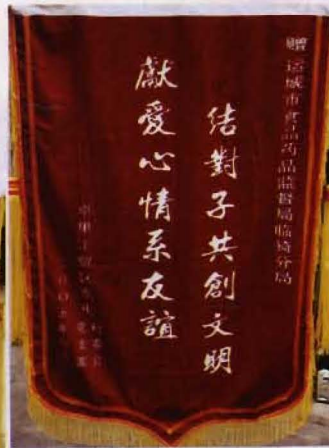 赠 运城市食品药品监督局临猗分局
结對子共創文明
獻愛心情系友誼